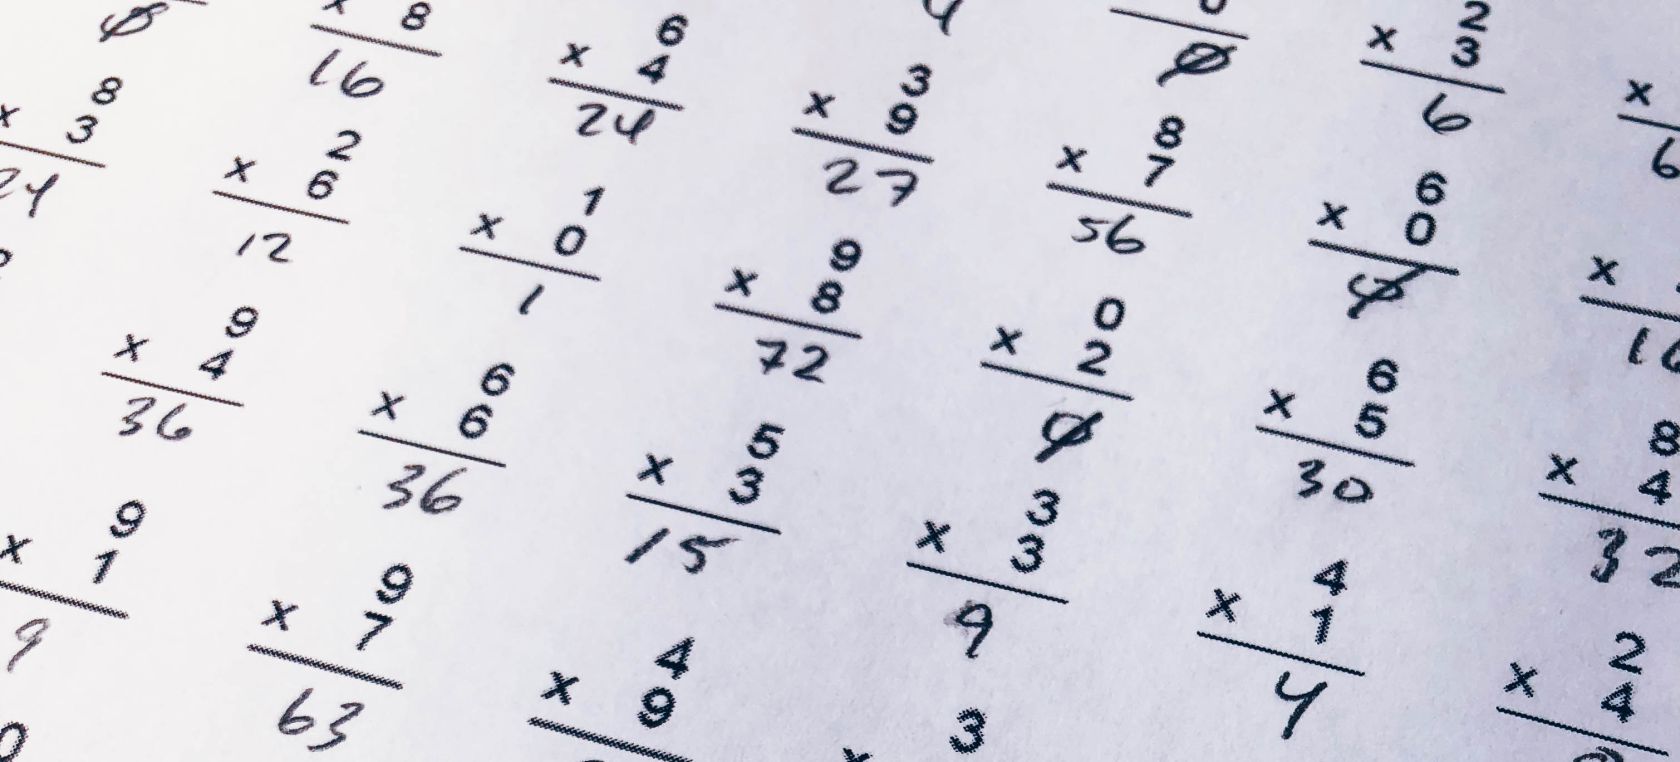 x 8
16
6
x 4
24
2
x 3
6
8
x 3
24
2
x 6
12
3
x 9
27
8
x 7
56
1
x 0
1
9
x 8
72
6
x 0
0
2
x 0
9
x 4
36
6
x 6
36
5
x 3
15
0
x 2
0
6
x 5
30
8
x 4
32
9
x 1
9
9
x 7
63
4
x 9
3
x 3
9
4
x 1
4
2
x 4
3
x